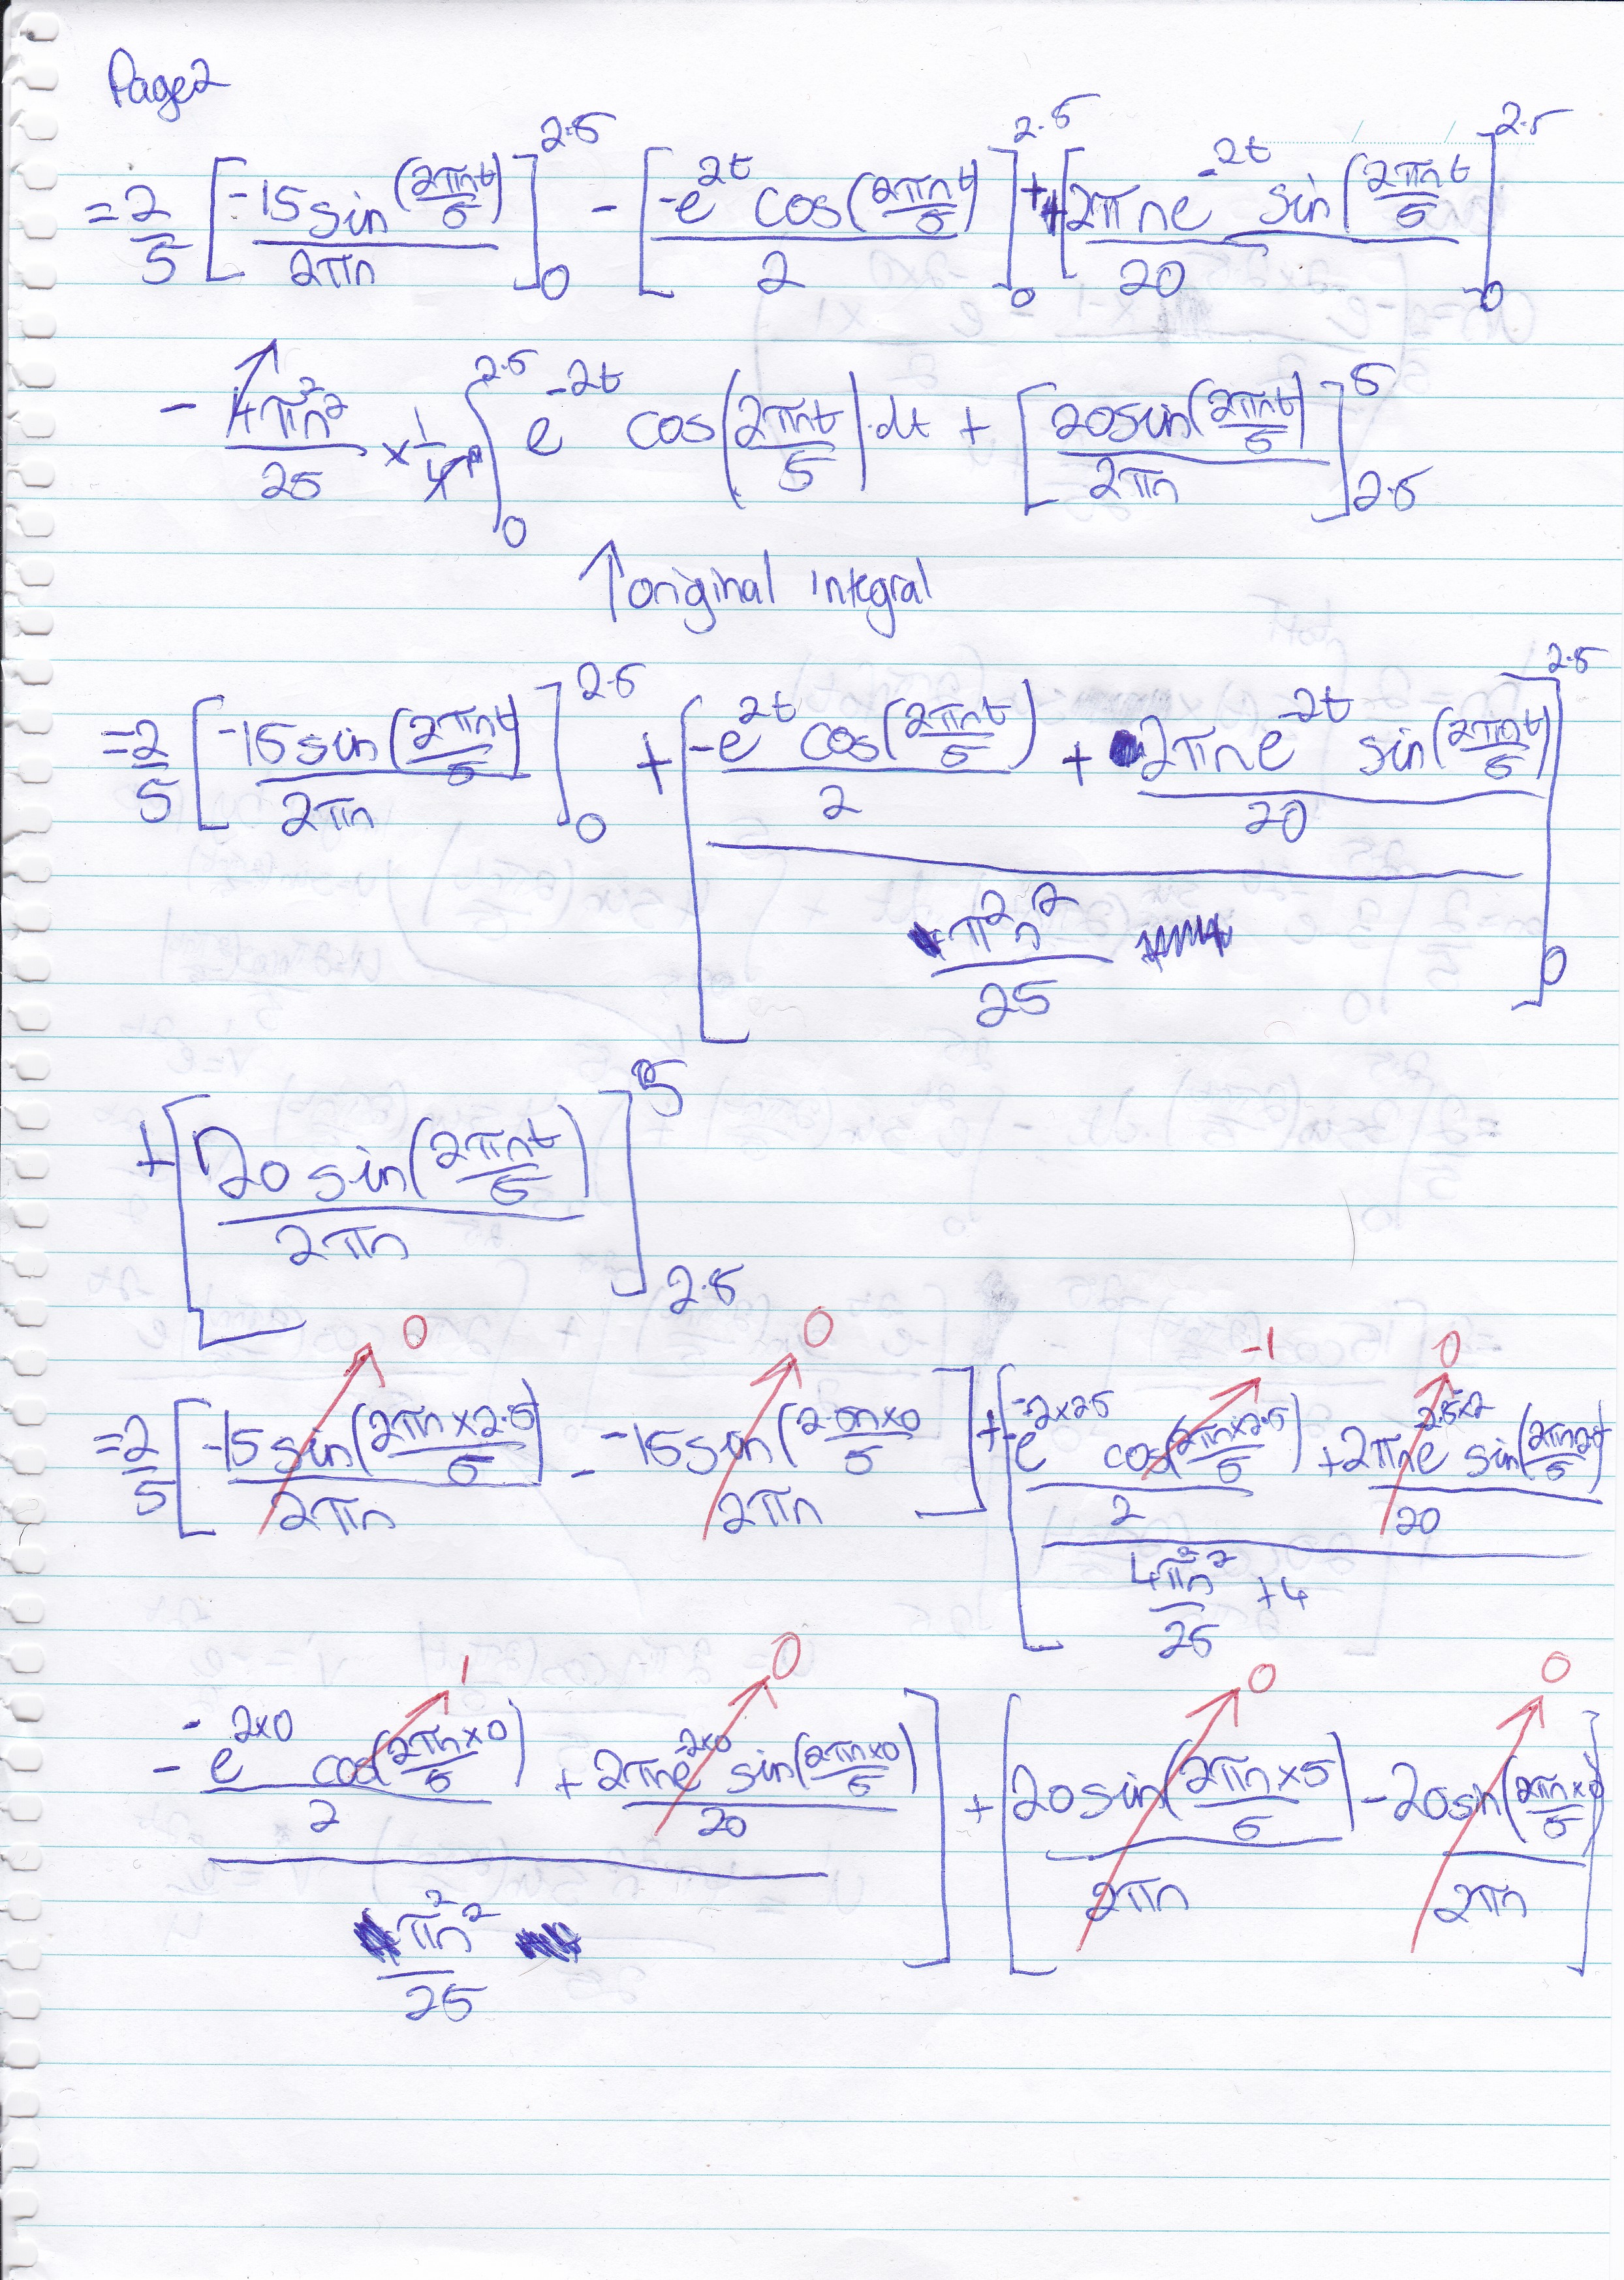 Page 2
= 2/5 [ -15 sin(2πnt/5) / 2πn ]_0^2.5 - [ -e^2t cos(2πnt/5) / 2 ]_0^2.5 + [ 2πne^-2t sin(2πnt/5 / 20 ]_0^2.5
- 4π²n²/25 × 1/4 ∫_0^2.5 e^-2t cos(2πnt/5).dt + [ 20sin(2πnt/5) / 2πn ]_2.5^5
↑ original integral
= 2/5 [ -15 sin(2πnt/5) / 2πn ]_0^2.5 + [ ( -e^2t cos(2πnt/5) / 2 + 2πne^-2t sin(2πnt/5) / 20 ) / (π²n²/25) ]_0^2.5
+ [ 20 sin(2πnt/5) / 2πn ]_2.5^5
0 0 -1 0
= 2/5 [ -15 sin(2πn×2.5/5) / 2πn - -15 sin(2πn×0/5 / 2πn ] + [ ( -e^-2×2.5 cos(2πn×2.5/5) / 2 + 2πne^2.5×2 sin(2πn2t/5) / 20 ) / (4π²n²/25 + 4)
1 0 0 0
- ( -e^2×0 cos(2πn×0/5) / 2 + 2πne^-2×0 sin(2πn×0/5) / 20 ) / (π²n²/25) ] + [ 20sin(2πn×5/5) / 2πn - 20sin(2πn×0/5) / 2πn ]